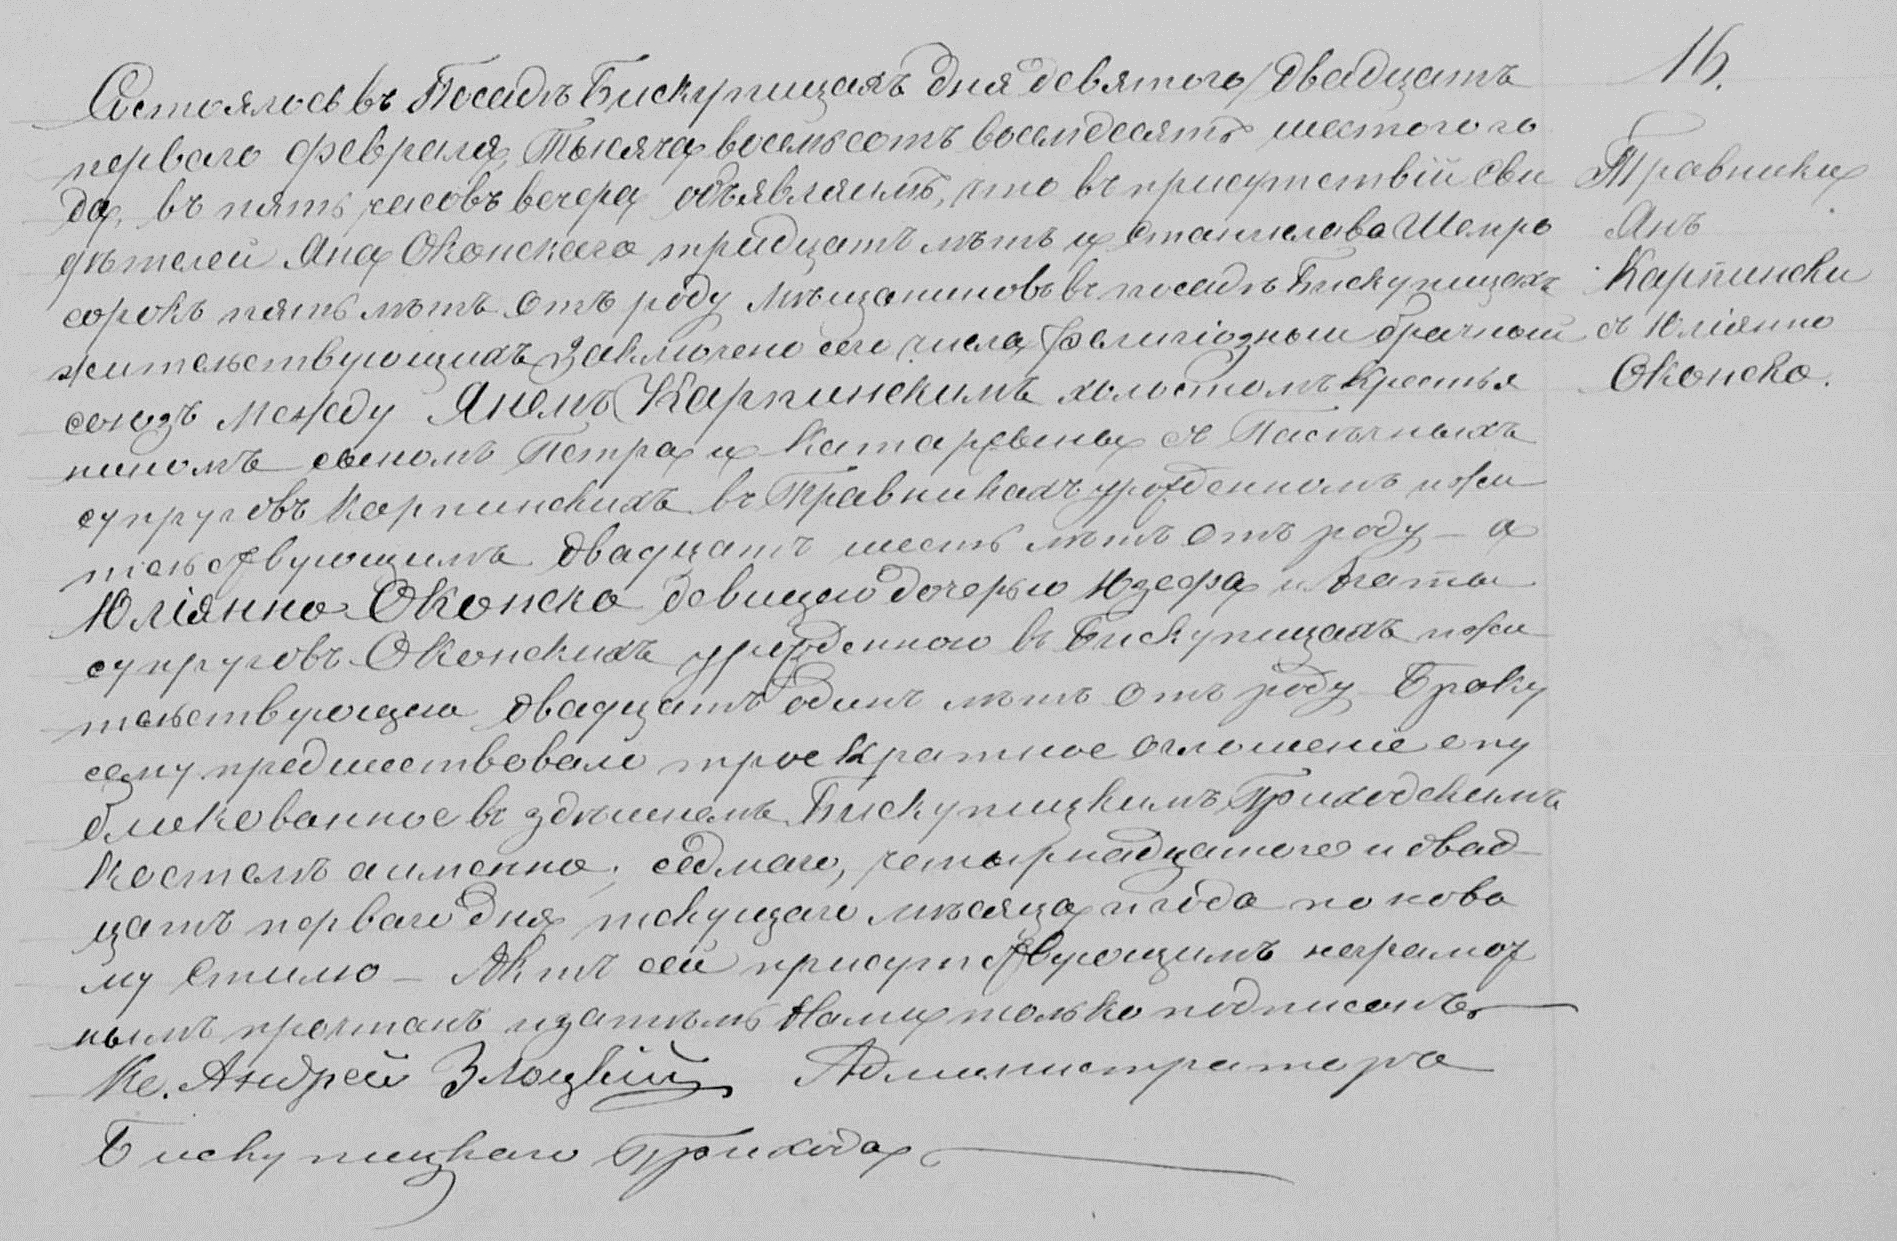 16.
Травники
Янъ
Карпински
съ Юліянно
Оконско.
Состоялось въ Посадѣ Бискупицахъ дня девятого/двадцать
перваго февраля, тысяча восемьсотъ восемдесятъ шестого го
да, въ пять часовъ вечера объявляимъ, что въ присутствій сви
дѣтелей Яна Оконскаго тридцать лѣтъ и Станислава Шемро
сорокъ пять лѣтъ отъ роду мѣщаниновъ въ посадѣ Бискупицахъ
жительствующихъ, заключено сего числа религіозный брачный
союзъ между Яномъ Карпинскимъ холостомъ крестья
ниномъ сыномъ Петра и Катаржины съ Пасѣчныхъ
супруговъ Карпинскихъ въ Травникахъ урожденномъ и жи
тельствующимъ двадцать шесть лѣтъ отъ роду – а
Юліянно Оконско девицею дочерью Юзефа и Агаты
супруговъ Оконскихъ урожденною въ Бискупицахъ и жи
тельствующею двадцать одинъ лѣтъ отъ роду – Браку
сему предшествовало троекратное оглошеніе опу
бликованное въ здѣшнемъ Бискупицкимъ Приходскимъ
Костелѣ а именно; седмаго, четырнадцатого и двад–
цать перваго дня текущаго мѣсяца и года по ново
му стилю – Актъ сей присутствующимъ неграмот
нымъ прочтанъ и затѣмъ Нами только подписанъ. –
Кс. Андрей Злоцкій Администраторъ
Бискупицкаго Прихода